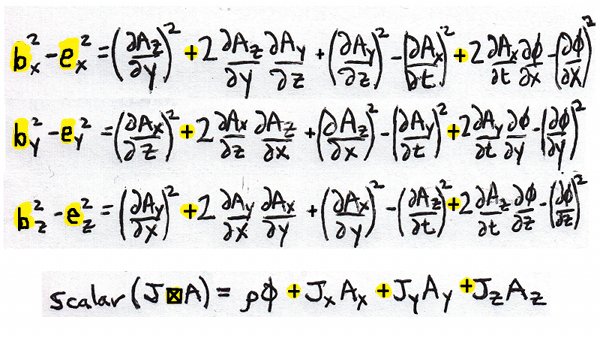 b_x^2 - e_x^2 = (∂A_z/∂y)^2 + 2 ∂A_z/∂y ∂A_y/∂z + (∂A_y/∂z)^2 - (∂A_x/∂t)^2 + 2 ∂A_x/∂t ∂ϕ/∂x - (∂ϕ/∂x)^2
b_y^2 - e_y^2 = (∂A_x/∂z)^2 + 2 ∂A_x/∂z ∂A_z/∂x + (∂A_z/∂x)^2 - (∂A_y/∂t)^2 + 2 ∂A_y/∂t ∂ϕ/∂y - (∂ϕ/∂y)^2
b_z^2 - e_z^2 = (∂A_y/∂x)^2 + 2 ∂A_y/∂x ∂A_x/∂y + (∂A_x/∂y)^2 - (∂A_z/∂t)^2 + 2 ∂A_z/∂t ∂ϕ/∂z - (∂ϕ/∂z)^2
scalar (J ⊠ A) = ρϕ + J_x A_x + J_y A_y + J_z A_z